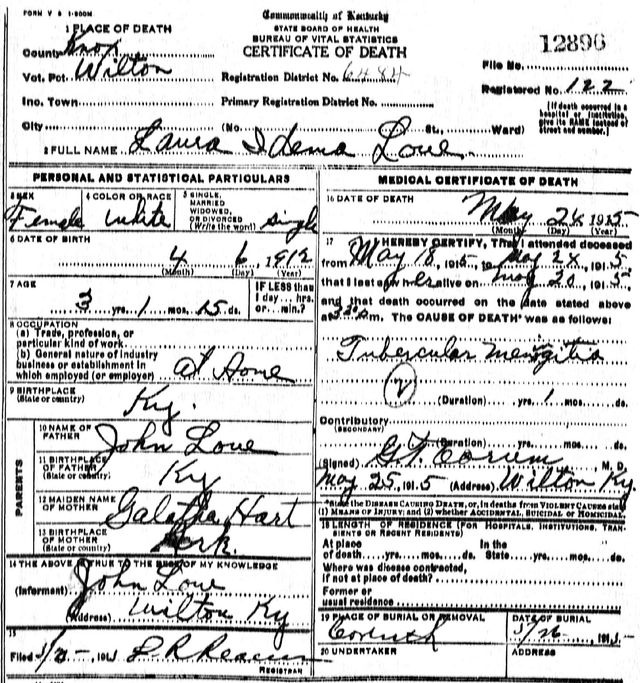 FORM V S 1-500M
Commonwealth of Kentucky
STATE BOARD OF HEALTH
BUREAU OF VITAL STATISTICS
CERTIFICATE OF DEATH
1 PLACE OF DEATH
County Knox
Vot. Pct. Wilton
Registration District No. 6484
File No. 12896
Registered No. 122
Inc. Town
Primary Registration District No.
[If death occurred in a hospital or institution, give its NAME instead of street and number.]
City (No. St., Ward)
2 FULL NAME Laura Idema Love
PERSONAL AND STATISTICAL PARTICULARS
3 SEX Female
4 COLOR OR RACE White
5 SINGLE, MARRIED WIDOWED, OR DIVORCED (Write the word) Single
6 DATE OF BIRTH
4 6 1912
(Month) (Day) (Year)
7 AGE
3 yrs. 1 mos. 15 ds.
IF LESS than 1 day... hrs. or... min.?
8 OCCUPATION
(a) Trade, profession, or particular kind of work
(b) General nature of industry business or establishment in which employed (or employer) at Home
9 BIRTHPLACE (State or country) Ky.
PARENTS
10 NAME OF FATHER John Love
11 BIRTHPLACE OF FATHER (State or country) Ky
12 MAIDEN NAME OF MOTHER Hart
13 BIRTHPLACE OF MOTHER (State or country)
14 THE ABOVE IS TRUE TO THE BEST OF MY KNOWLEDGE
(Informant) John Love
(Address) Wilton Ky
15
Filed 191
REGISTRAR
MEDICAL CERTIFICATE OF DEATH
16 DATE OF DEATH
May 24 1915
(Month) (Day) (Year)
17 I HEREBY CERTIFY, That I attended deceased
from May 18 1915 to May 24 1915
that I last saw her alive on May 20 1915
and that death occurred on the date stated above
at m. The CAUSE OF DEATH* was as follows:
Tubercular Menigitis
(Duration) yrs. 1 mos. ds.
Contributory
(SECONDARY)
(Duration) yrs. mos. ds.
(Signed) G.T. Corum M.D.
May 25, 1915 (Address) Wilton Ky.
*State the DISEASE CAUSING DEATH, or, in deaths from VIOLENT CAUSES state
(1) MEANS OF INJURY; and (2) whether ACCIDENTAL, SUICIDAL or HOMICIDAL.
18 LENGTH OF RESIDENCE (FOR HOSPITALS, INSTITUTIONS, TRANSIENTS OR RECENT RESIDENTS)
At place of death yrs. mos. ds. In the State yrs. mos. ds.
Where was disease contracted, if not at place of death?
Former or usual residence
19 PLACE OF BURIAL OR REMOVAL
DATE OF BURIAL
5/26 191
20 UNDERTAKER
ADDRESS